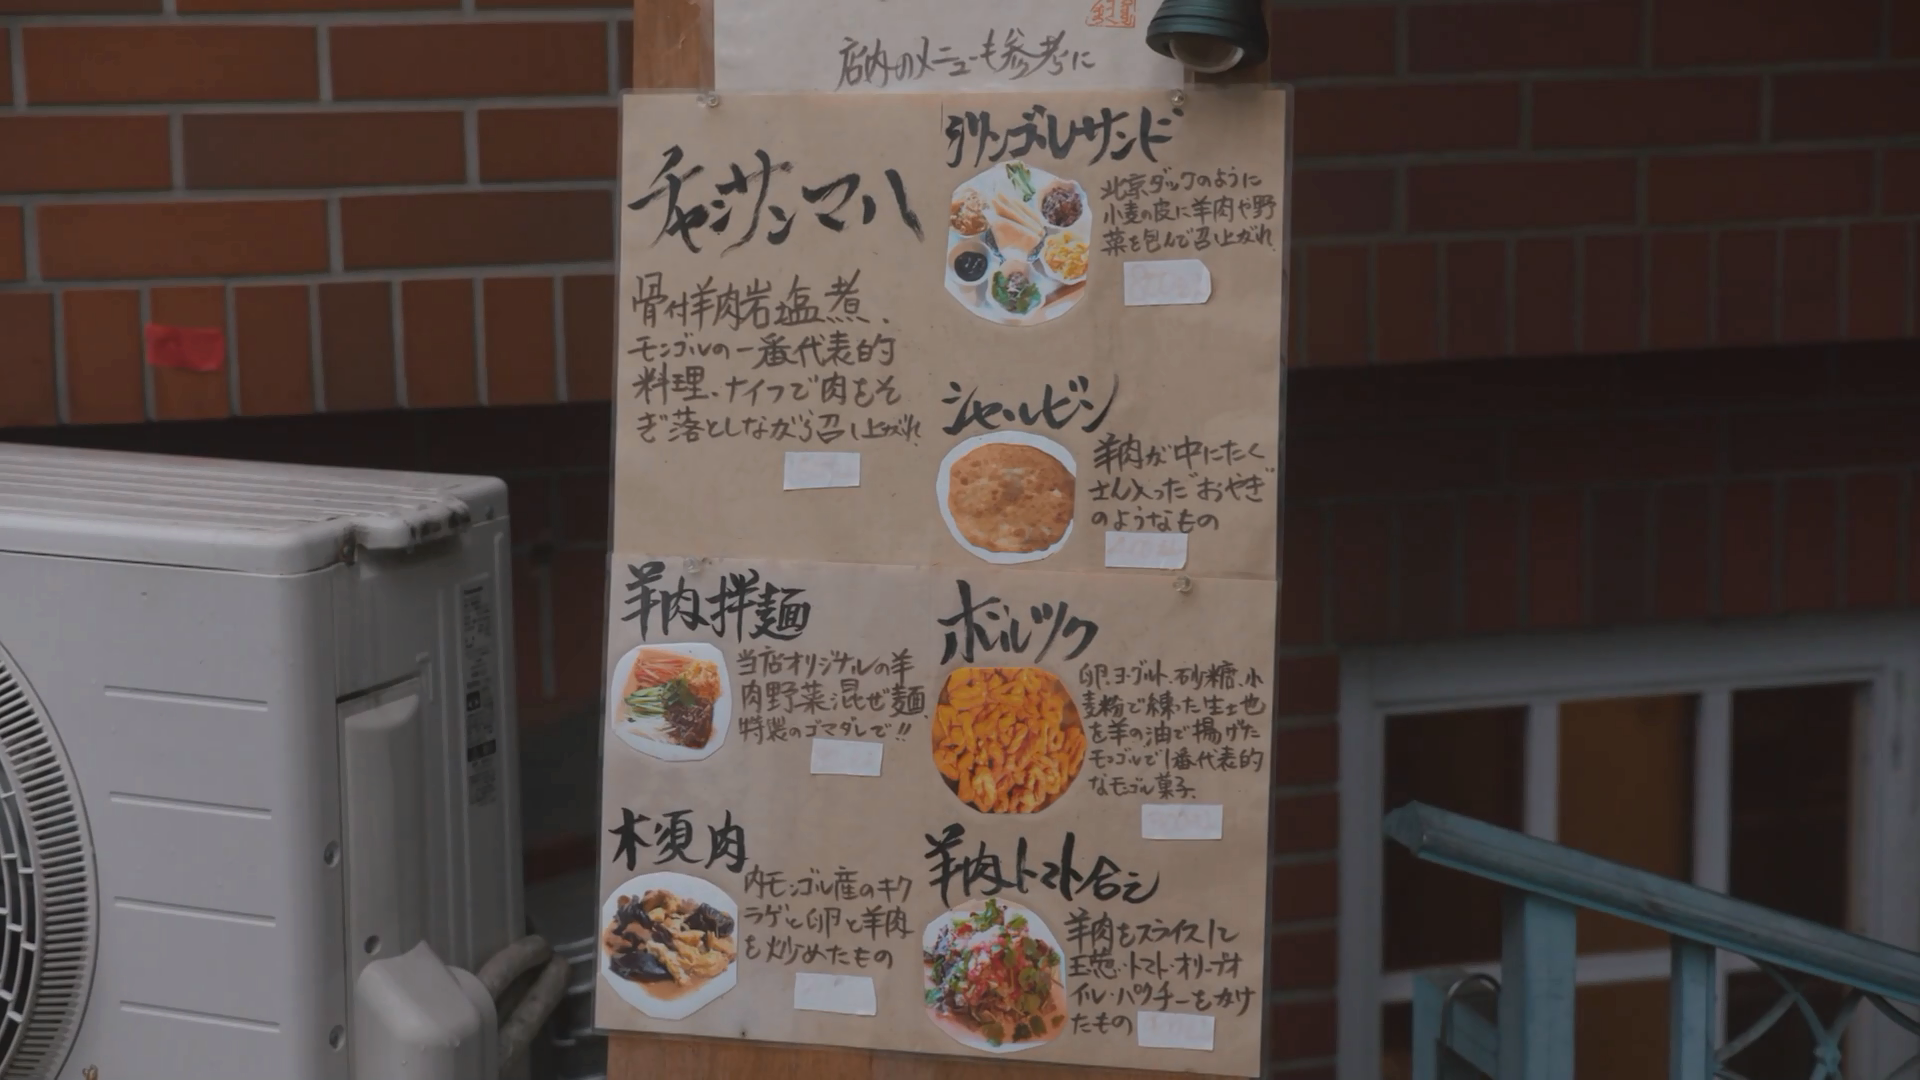 店内のメニューも参考に
チャンサンマハ
骨付羊肉岩塩煮、
モンゴルの一番代表的
料理、ナイフで肉をそ
ぎ落としながら召し上がれ
シリンゴルサンド
北京ダックのように
小麦の皮に羊肉や野
菜を包んで召し上がれ
シャルビン
羊肉が中にたく
さん入った"おやき"
のようなもの
羊肉拌麺
当店オリジナルの羊
肉野菜混ぜ麺、
特製のゴマダレで!!
ボルツク
卵、ヨーグルト、砂糖、小
麦粉で練った生地
を羊の油で揚げた
モンゴルで1番代表的
なモンゴル菓子。
木須肉
内モンゴル産のキク
ラゲと卵と羊肉
を炒めたもの
羊肉トマト合え
羊肉をスライスして
玉葱・トマト・オリーブオ
イル・パクチーをかけ
たもの